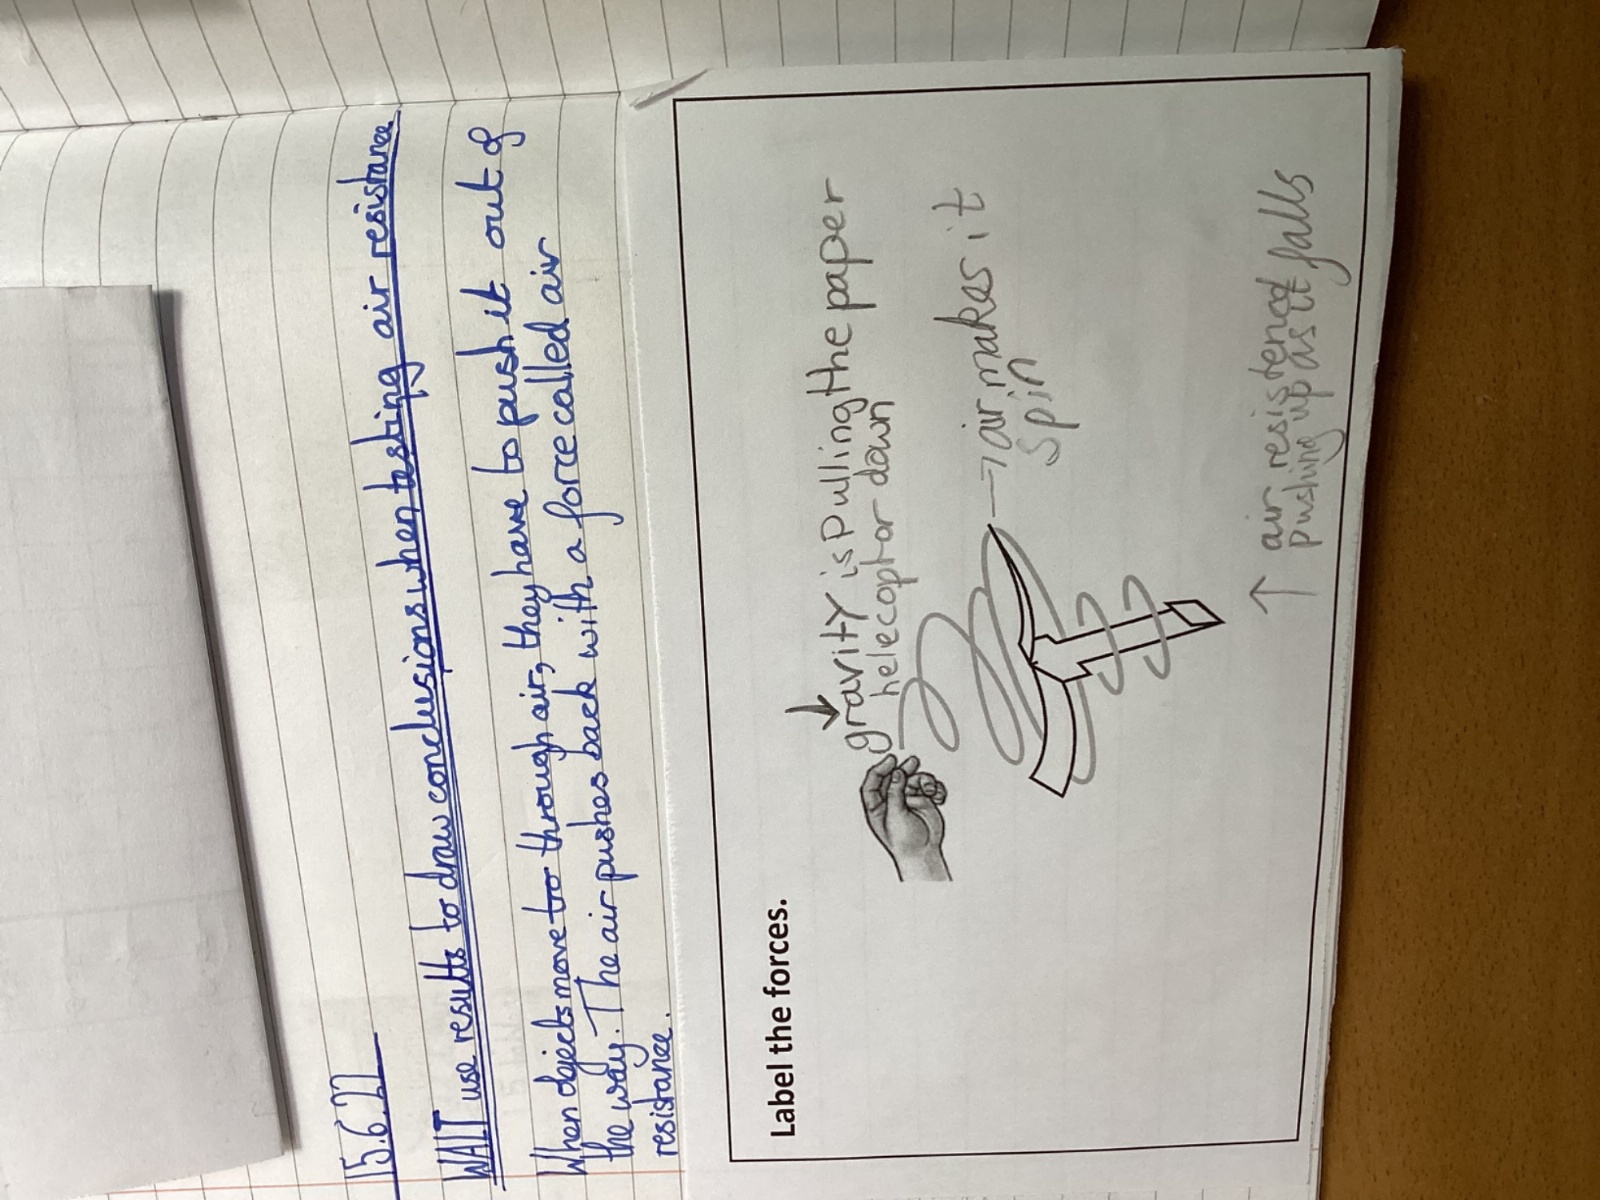 15.6.22
WALT use results to draw conclusions when testing air resistance
When objects move too through air, they have to push it out of
the way. The air pushes back with a force called air
resistance.
Label the forces.
gravity is pulling the paper
helecoptor down
air makes it
spin
air resistence
pushing up as it falls